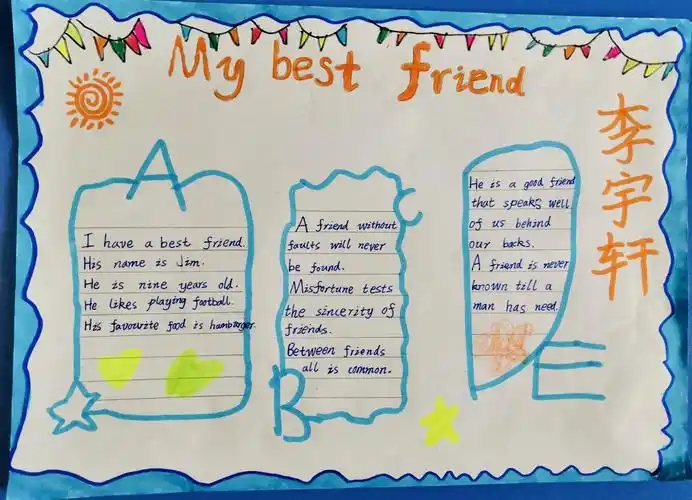 My best friend
李宇轩
A
I have a best friend.
His name is Jim.
He is nine years old.
He likes playing football.
His favourite food is hamburger.
B
C
A friend without
faults will never
be found.
Misfortune tests
the sincerity of
friends.
Between friends
all is common.
He is a good friend
that speaks well
of us behind
our backs.
A friend is never
known till a
man has need.
E